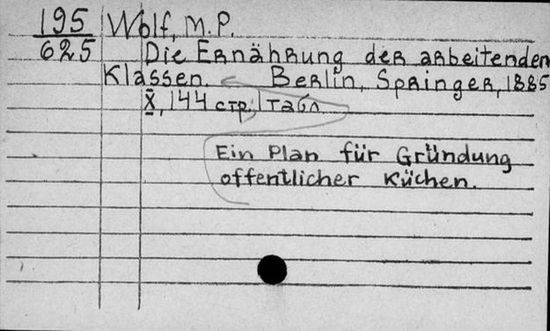 195 Wolf, M.P.
625 Die Ernährung der arbeitenden
Klassen. Berlin, Springer, 1885
X, 144 стр, 1 табл
Ein Plan für Gründung
offentlicher Küchen.